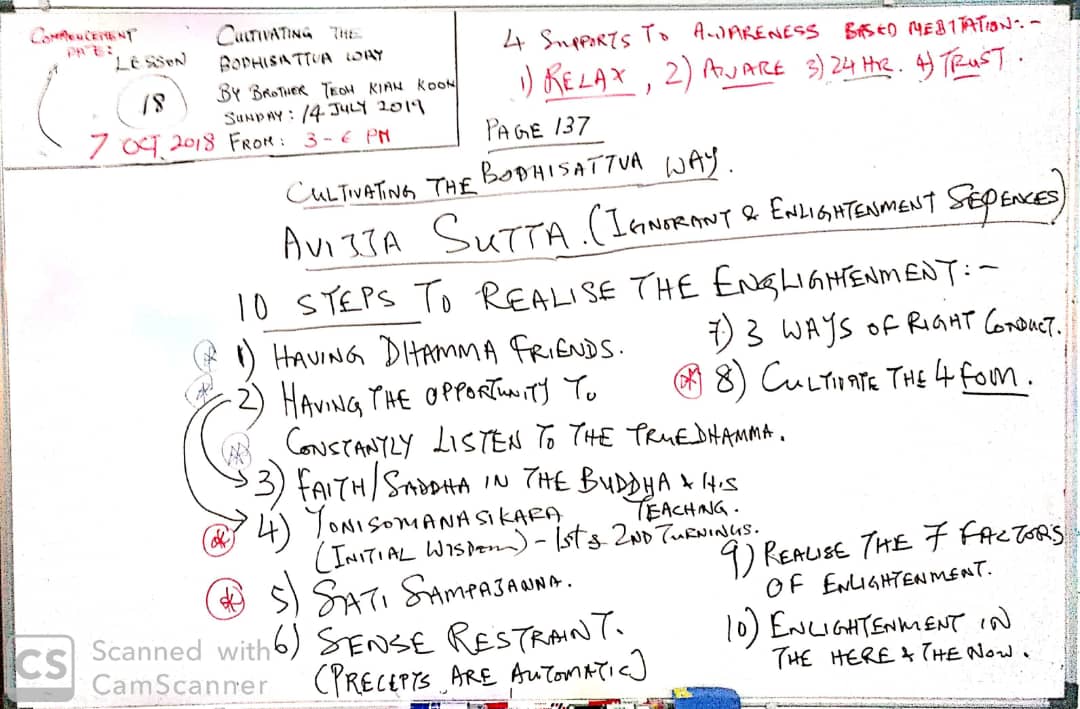 COMMENCEMENT
DATE:
LESSON
18
7 OCT 2018
CULTIVATING THE
BODHISATTVA WAY
BY BROTHER TEOH KIAN KOON
SUNDAY: 14 JULY 2019
FROM: 3-6 PM
4 SUPPORTS TO AWARENESS BASED MEDITATION:-
1) RELAX, 2) AWARE 3) 24 HR. 4) TRUST.
PAGE 137
CULTIVATING THE BODHISATTVA WAY.
AVIJJA SUTTA. (IGNORANT & ENLIGHTENMENT SEQENCES)
10 STEPS TO REALISE THE ENGLIGHTENMENT:-
1) HAVING DHAMMA FRIENDS.
2) HAVING THE OPPORTUNITY TO
CONSTANTLY LISTEN TO THE TRUE DHAMMA.
3) FAITH/SADDHA IN THE BUDDHA & HIS
TEACHING.
4) YONISOMANASIKARA
(INITIAL WISDOM) - 1st & 2ND TURNINGS.
5) SATI SAMPAJANNA.
6) SENSE RESTRAINT.
(PRECEPTS ARE AUTOMATIC)
7) 3 WAYS OF RIGHT CONDUCT.
8) CULTIVATE THE 4 fom.
9) REALISE THE 7 FACTORS
OF ENLIGHTENMENT.
10) ENLIGHTENMENT IN
THE HERE & THE NOW.
CS Scanned with
CamScanner